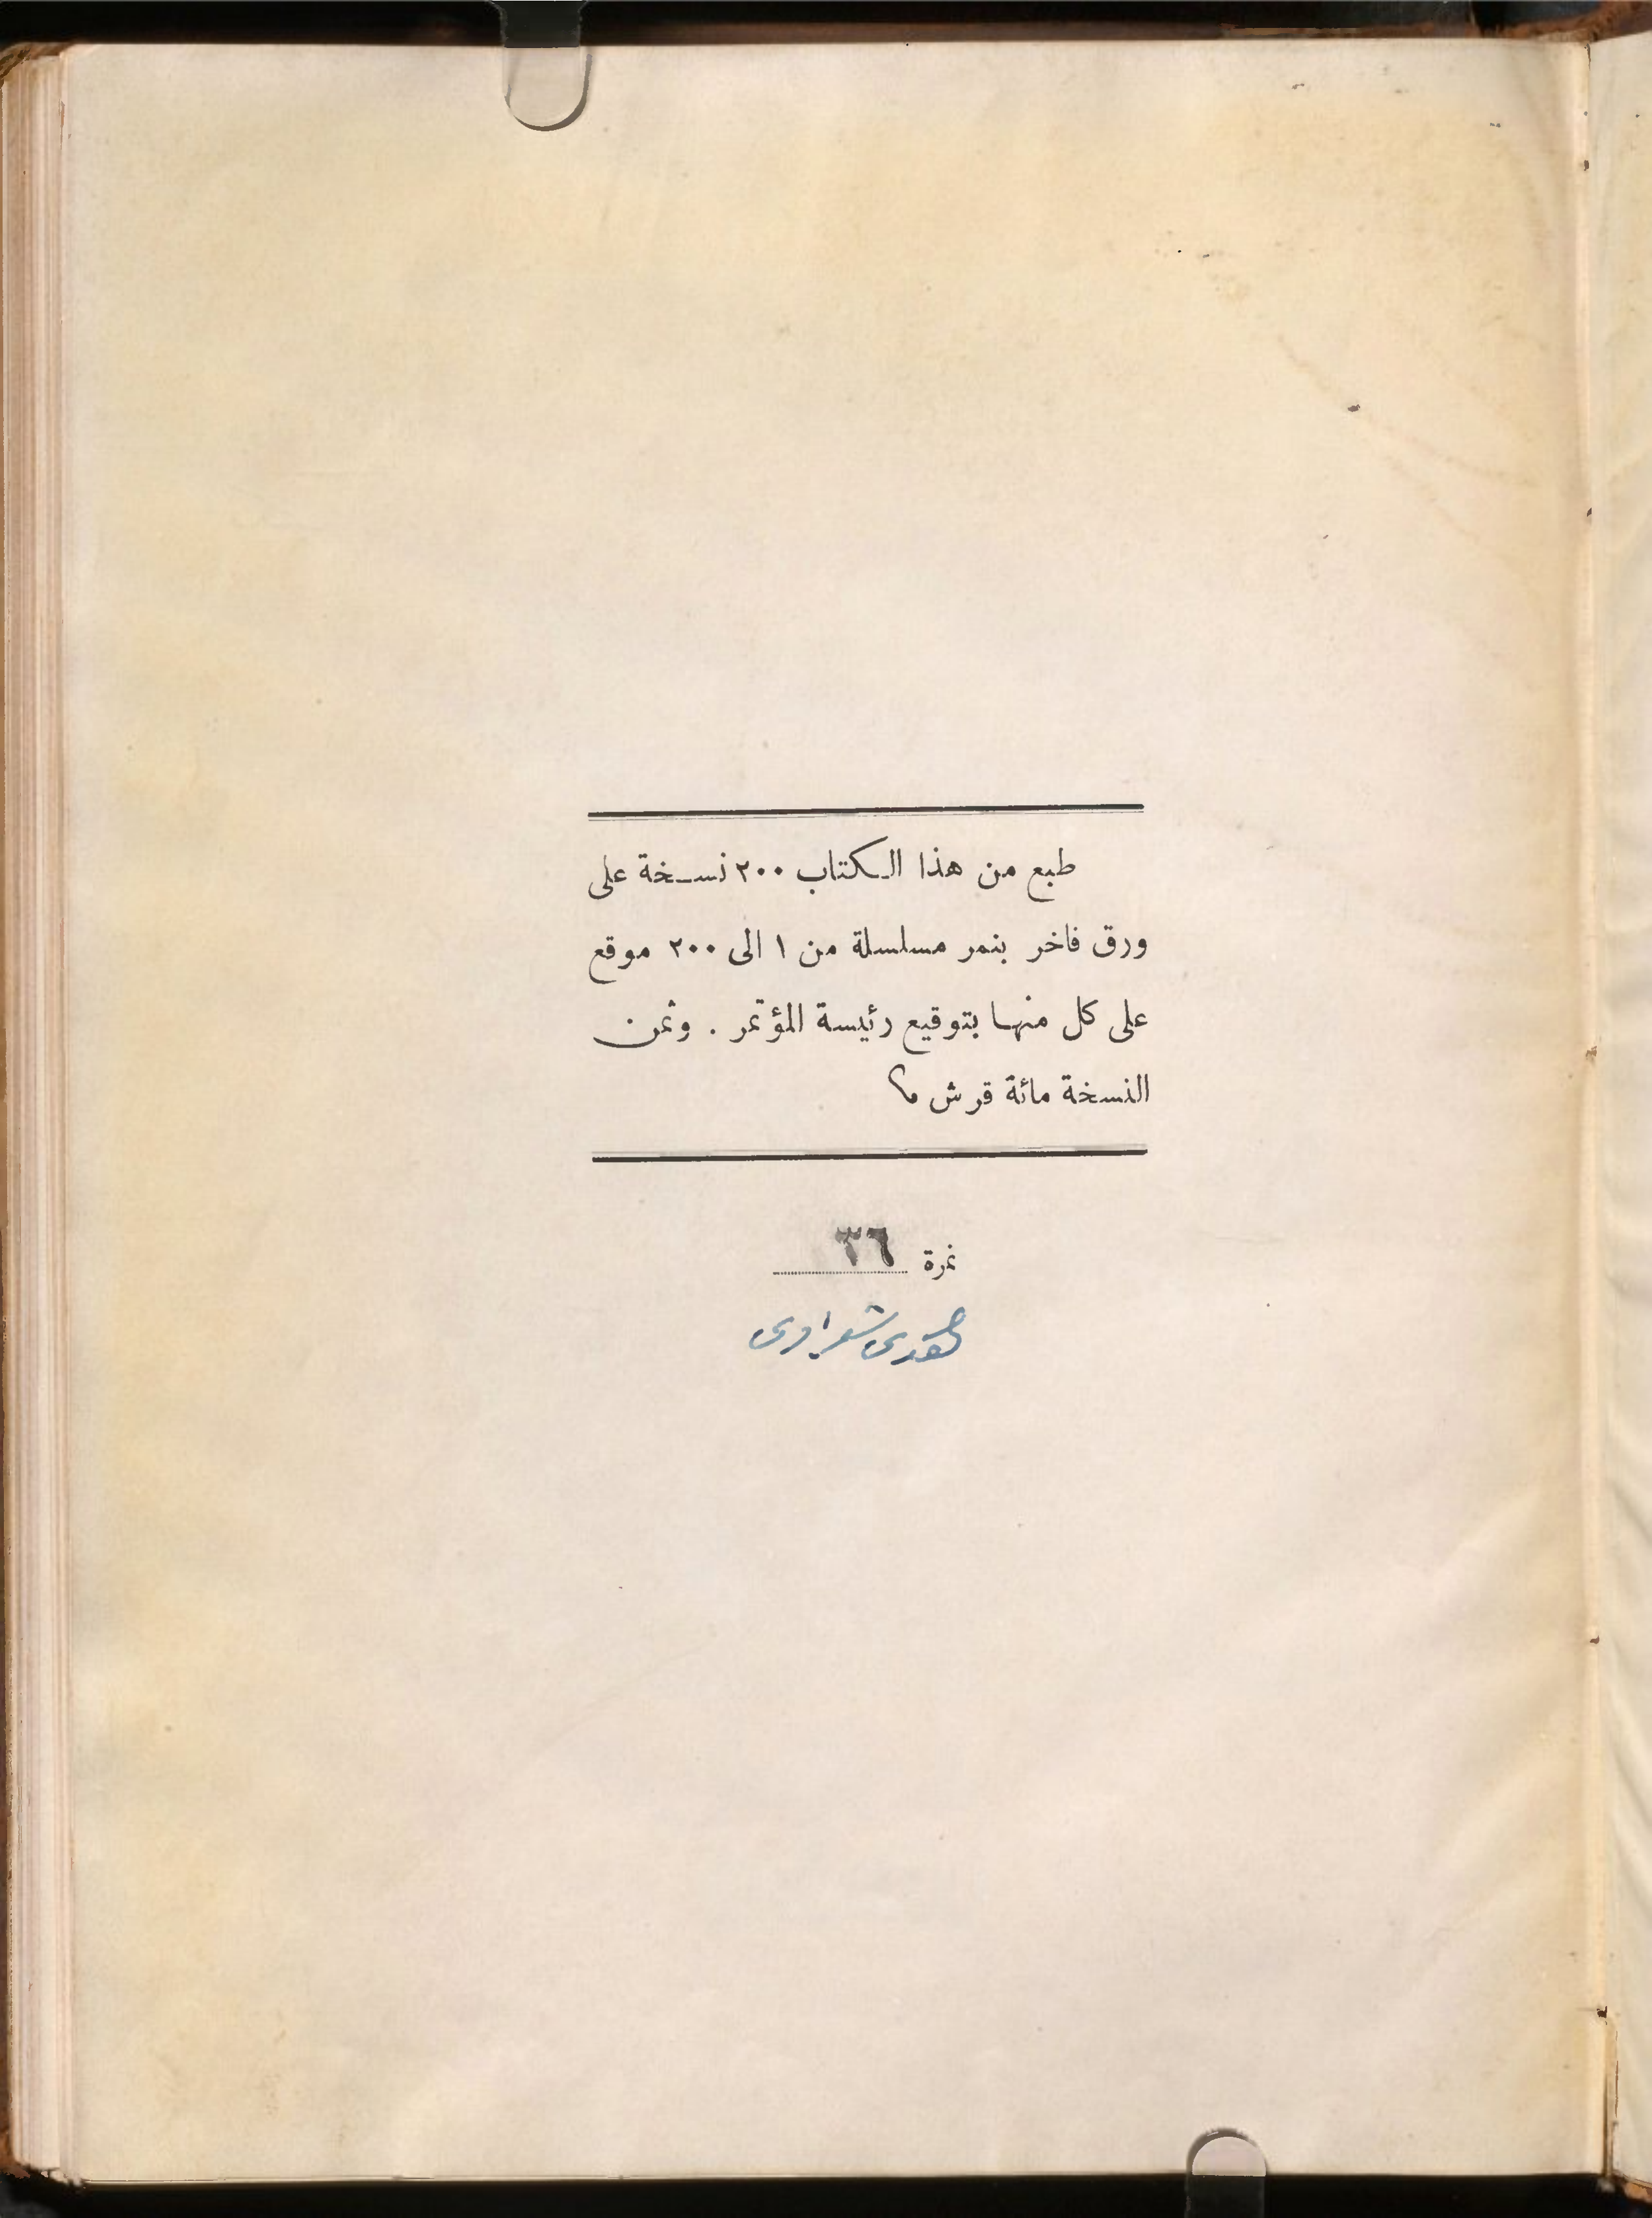 طبع من هذا الكتاب ٢٠٠ نسخة على
ورق فاخر بنمر مسلسلة من ١ الى ٢٠٠ موقع
على كل منها بتوقيع رئيسة المؤتمر . وثمن
النسخة مائة قرش م؟
نمرة ٣٦
هدى شعراوى